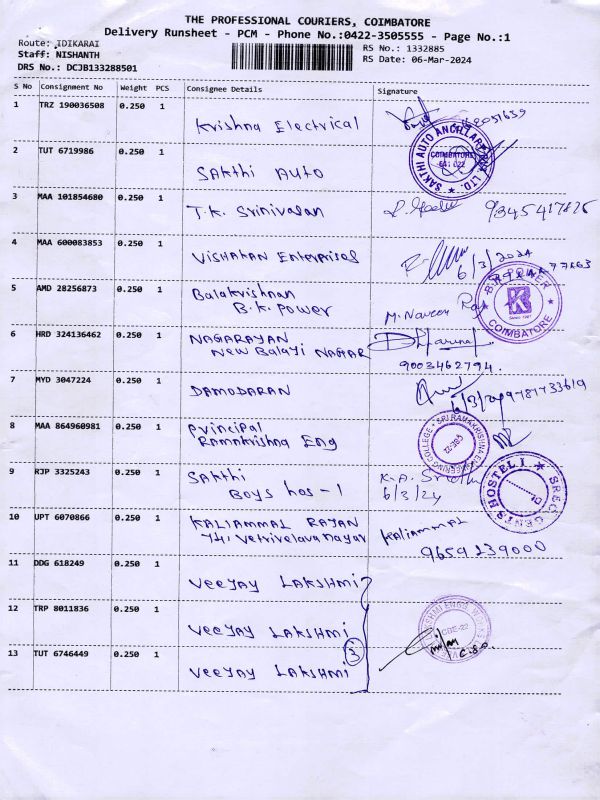 THE PROFESSIONAL COURIERS, COIMBATORE
Delivery Runsheet - PCM - Phone No.:0422-3505555 - Page No.:1
Route: IDIKARAI
RS No.: 1332885
Staff: NISHANTH
RS Date: 06-Mar-2024
DRS No.: DCJB133288501
S No Consignment No Weight PCS Consignee Details Signature
1 TRZ 190036508 0.250 1
Krishna Electrical
2 TUT 6719986 0.250 1
SAKthi AUTO
SAKTHI AUTO ANCILLARY
LTD.
COIMBATORE
641 022
3 MAA 101854680 0.250 1
T.K. Srinivasan
4 MAA 600083853 0.250 1
VISHAKAN Enterprises
6/3/2024
5 AMD 28256873 0.250 1
Balakrishnan
B.K. power
M. Naveen Raj
B.K. POWER
COIMBATORE
6 HRD 324136462 0.250 1
NAGARAYAN
New Balayi NAGAR
9003462794.
7 MYD 3047224 0.250 1
DAMODARAN
8 MAA 864960981 0.250 1
Principal
Ramakrishna Eng
SRI RAMAKRISHNA ENGINEERING COLLEGE
9 RJP 3325243 0.250 1
SAKthi
Boys hos-1
K.A.
6/3/24
SREC GENTS HOSTEL I
10 UPT 6070866 0.250 1
KALIAMMAL RAJAN
Vetrivelavanayar
KALIAMMAL
9659239000
11 DDG 618249 0.250 1
Veejay LAKSHMI
12 TRP 8011836 0.250 1
Veejay LAKSHMI
3
13 TUT 6746449 0.250 1
Veejay LAKSHMI